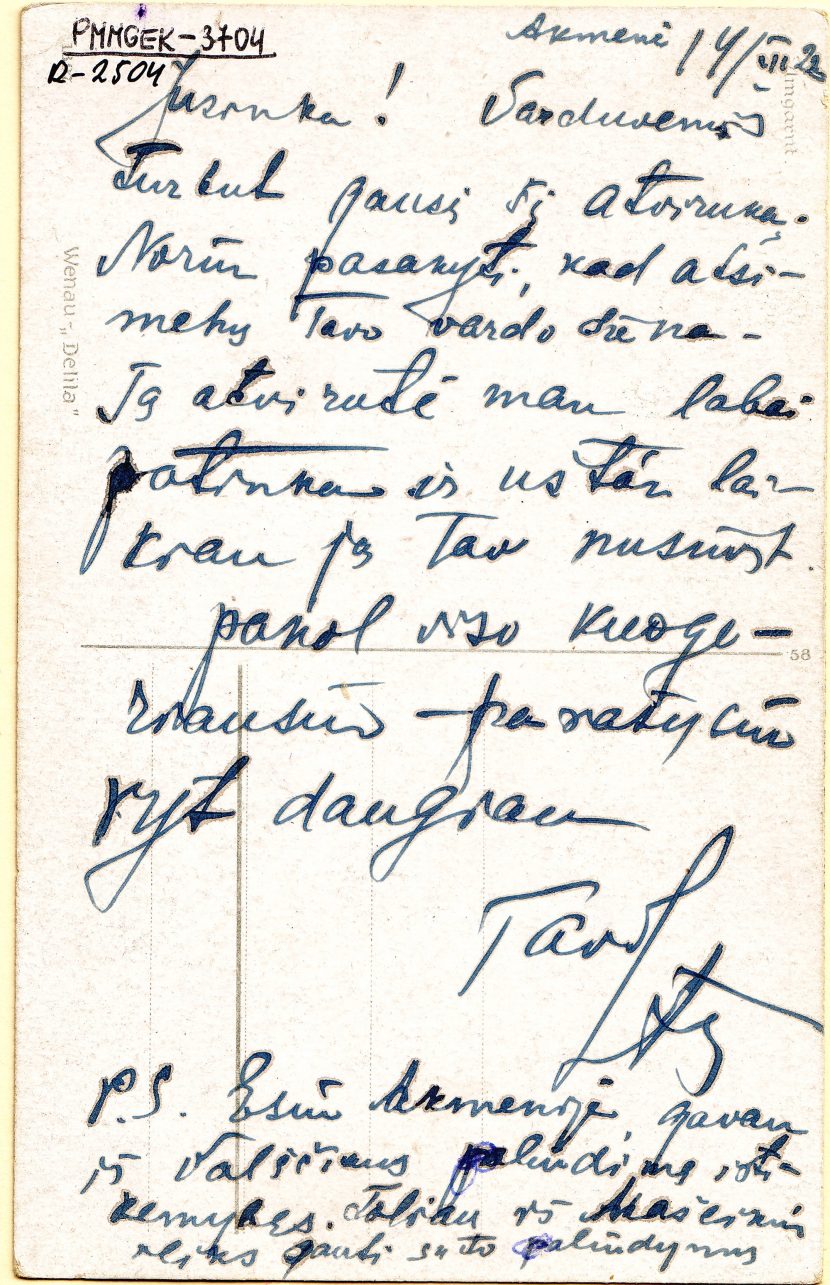 PMMGEK-3704
R-2504
Akmenė 14/III 22
Juzinka! Varduvenių
Turbut gausi šį atviruką.
Noriu pasakyti, kad atsi-
menu Tavo vardo dieną -
Ta atvirutė man labai
patinka ir už tai lai-
kiau ją Tau nusiųst.
pakol viso kuoge-
riausio - parašyciu
ryt daugiau
Tavo
P.S. Esiu Akmenėje, gavau
iš Valsčiaus paliudimą išti-
kemybes. Toliau iš Mažeikių
reiks gauti su to paliudymus
Wenau-„Delila"
58